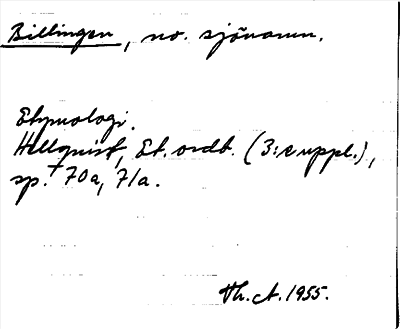 Billingen, no. sjönamn.
Etymologi.
Hellquist, Et. ordb. (3:e uppl.),
sp. 70a, 71a.
Th. A. 1955.